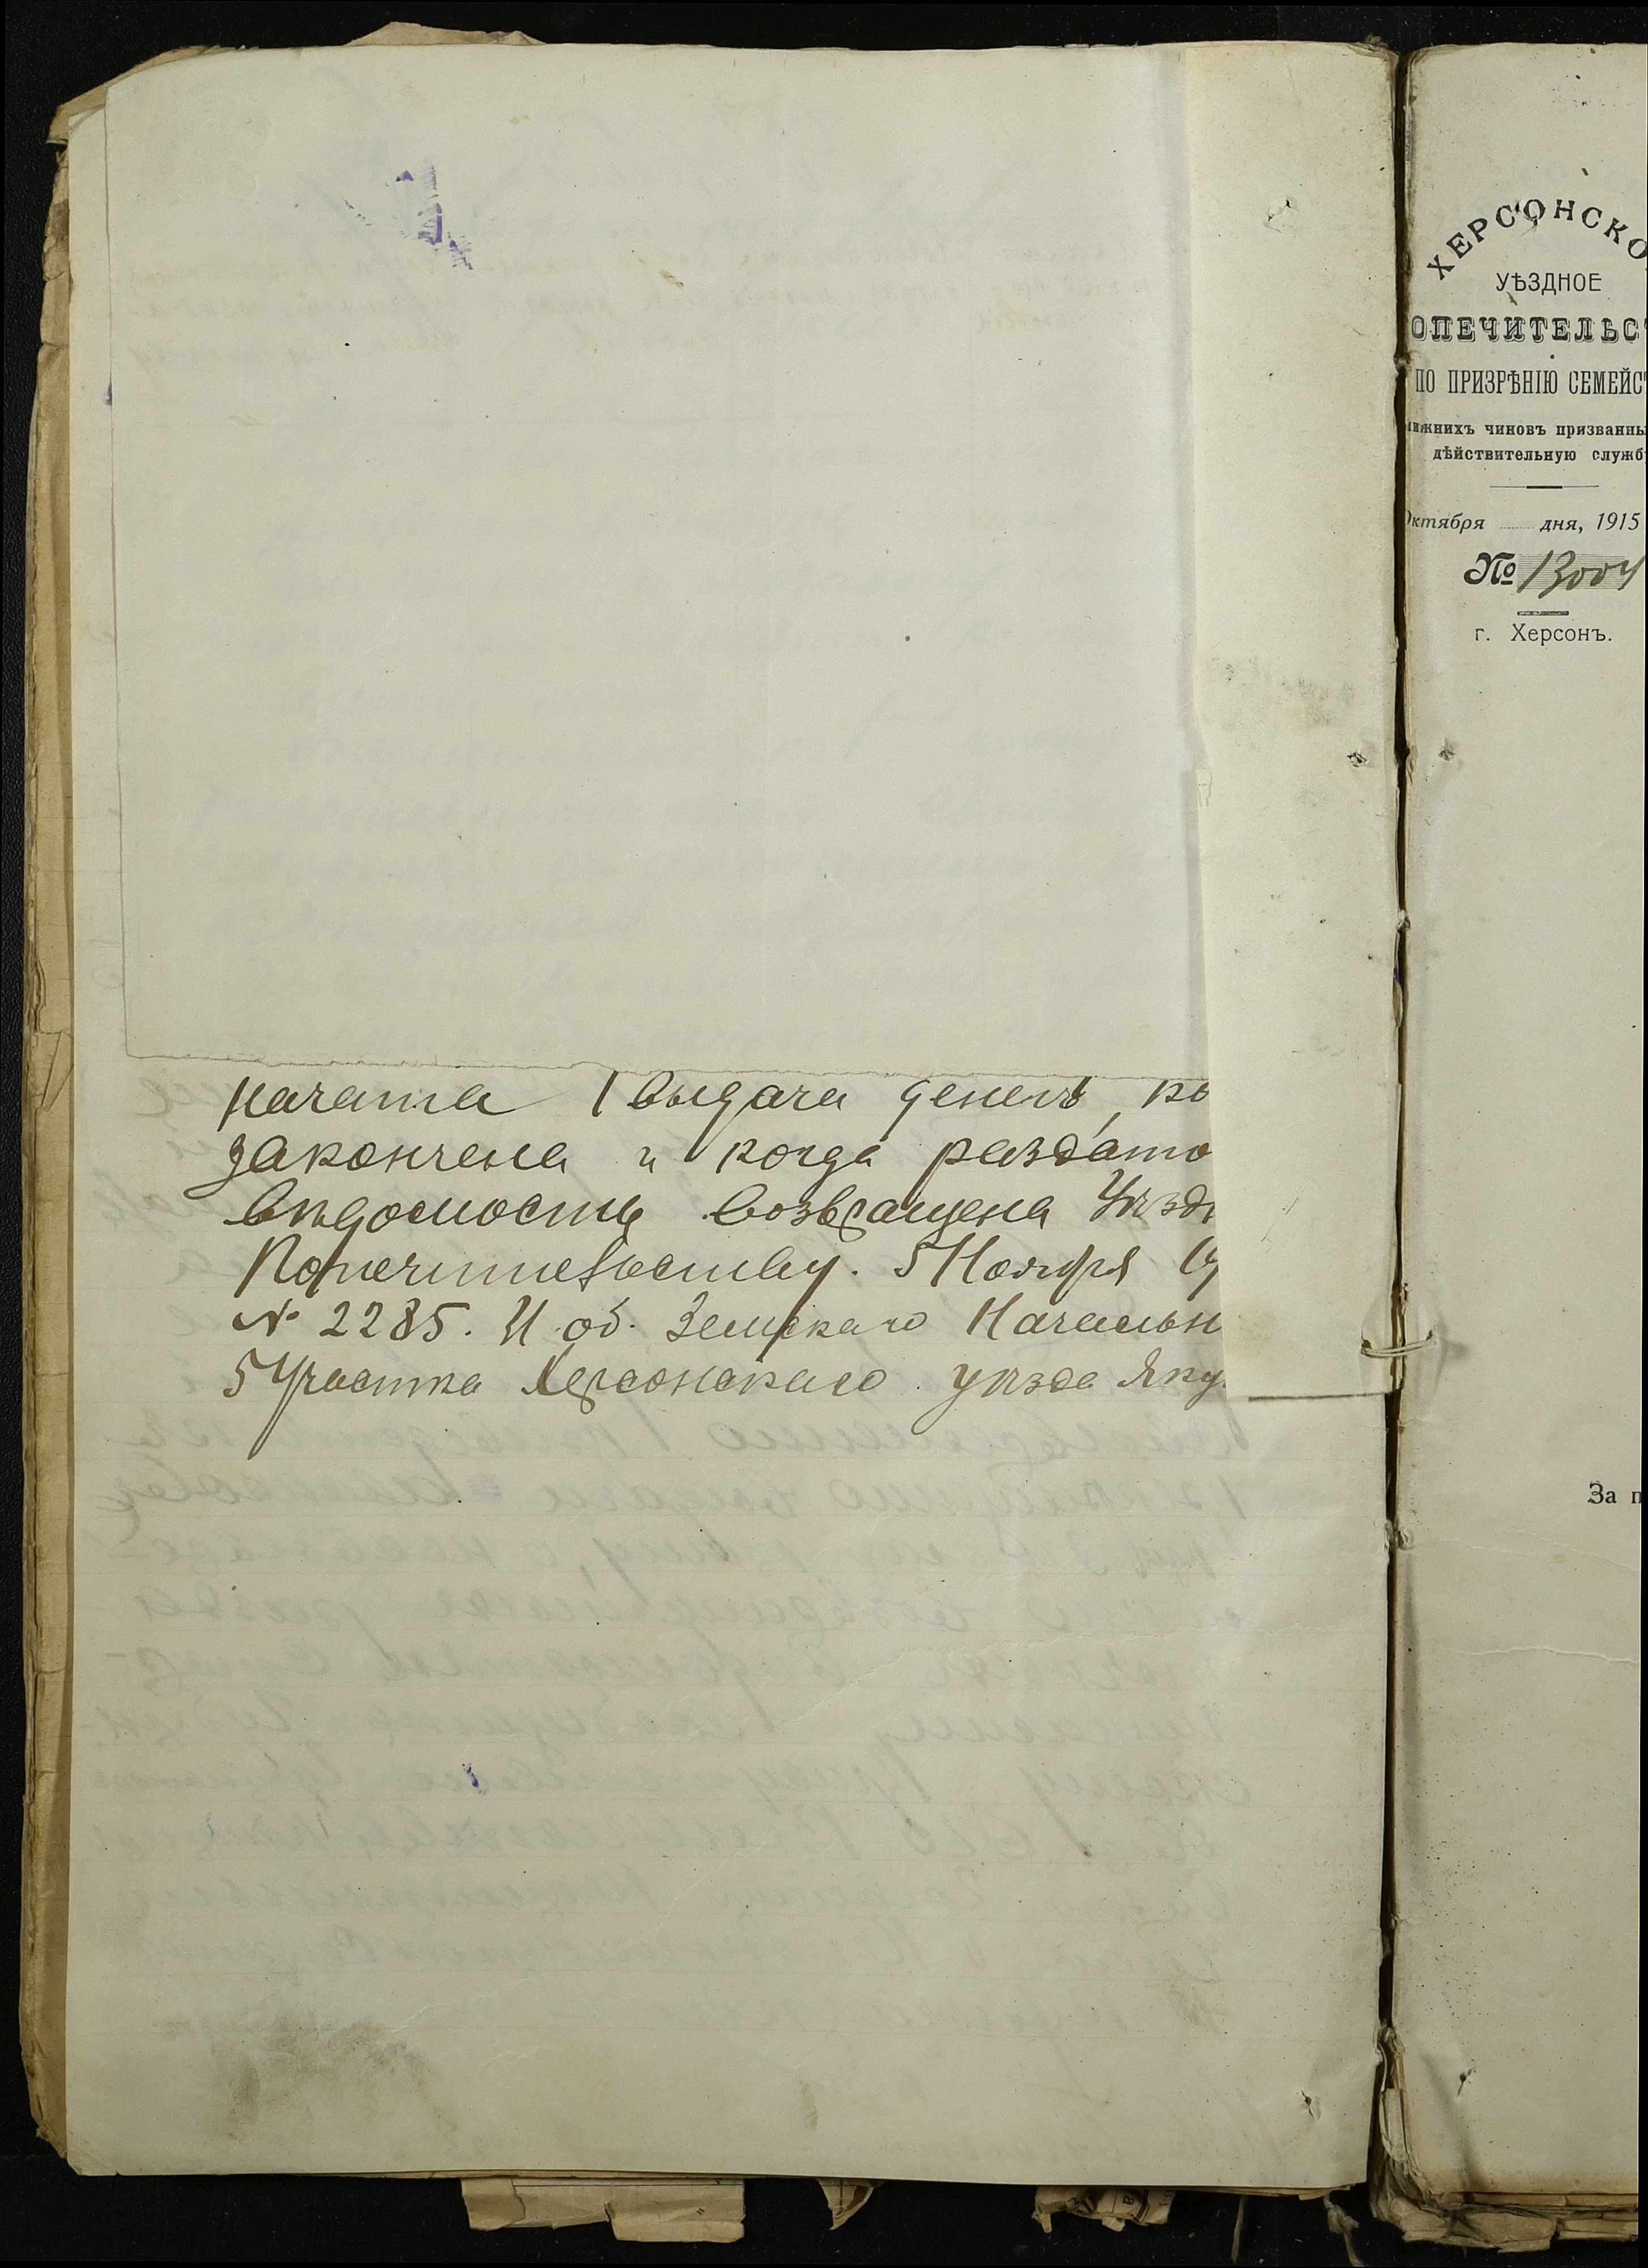 начата / выдача денегъ, ко
закончена и когда раздато
вѣдомость возвращена Уѣздн
Попечительству. 5 Ноября 19
№ 2285. И. об. Земскаго Начальн
5 Участка Херсонскаго уѣзда Яку
ХЕРСОНСКО
УѢЗДНОЕ
ОПЕЧИТЕЛЬС
ПО ПРИЗРѢНІЮ СЕМЕЙС
нижнихъ чиновъ призванны
дѣйствительную служб
Октября дня, 1915
№ 13004
г. Херсонъ.
За п